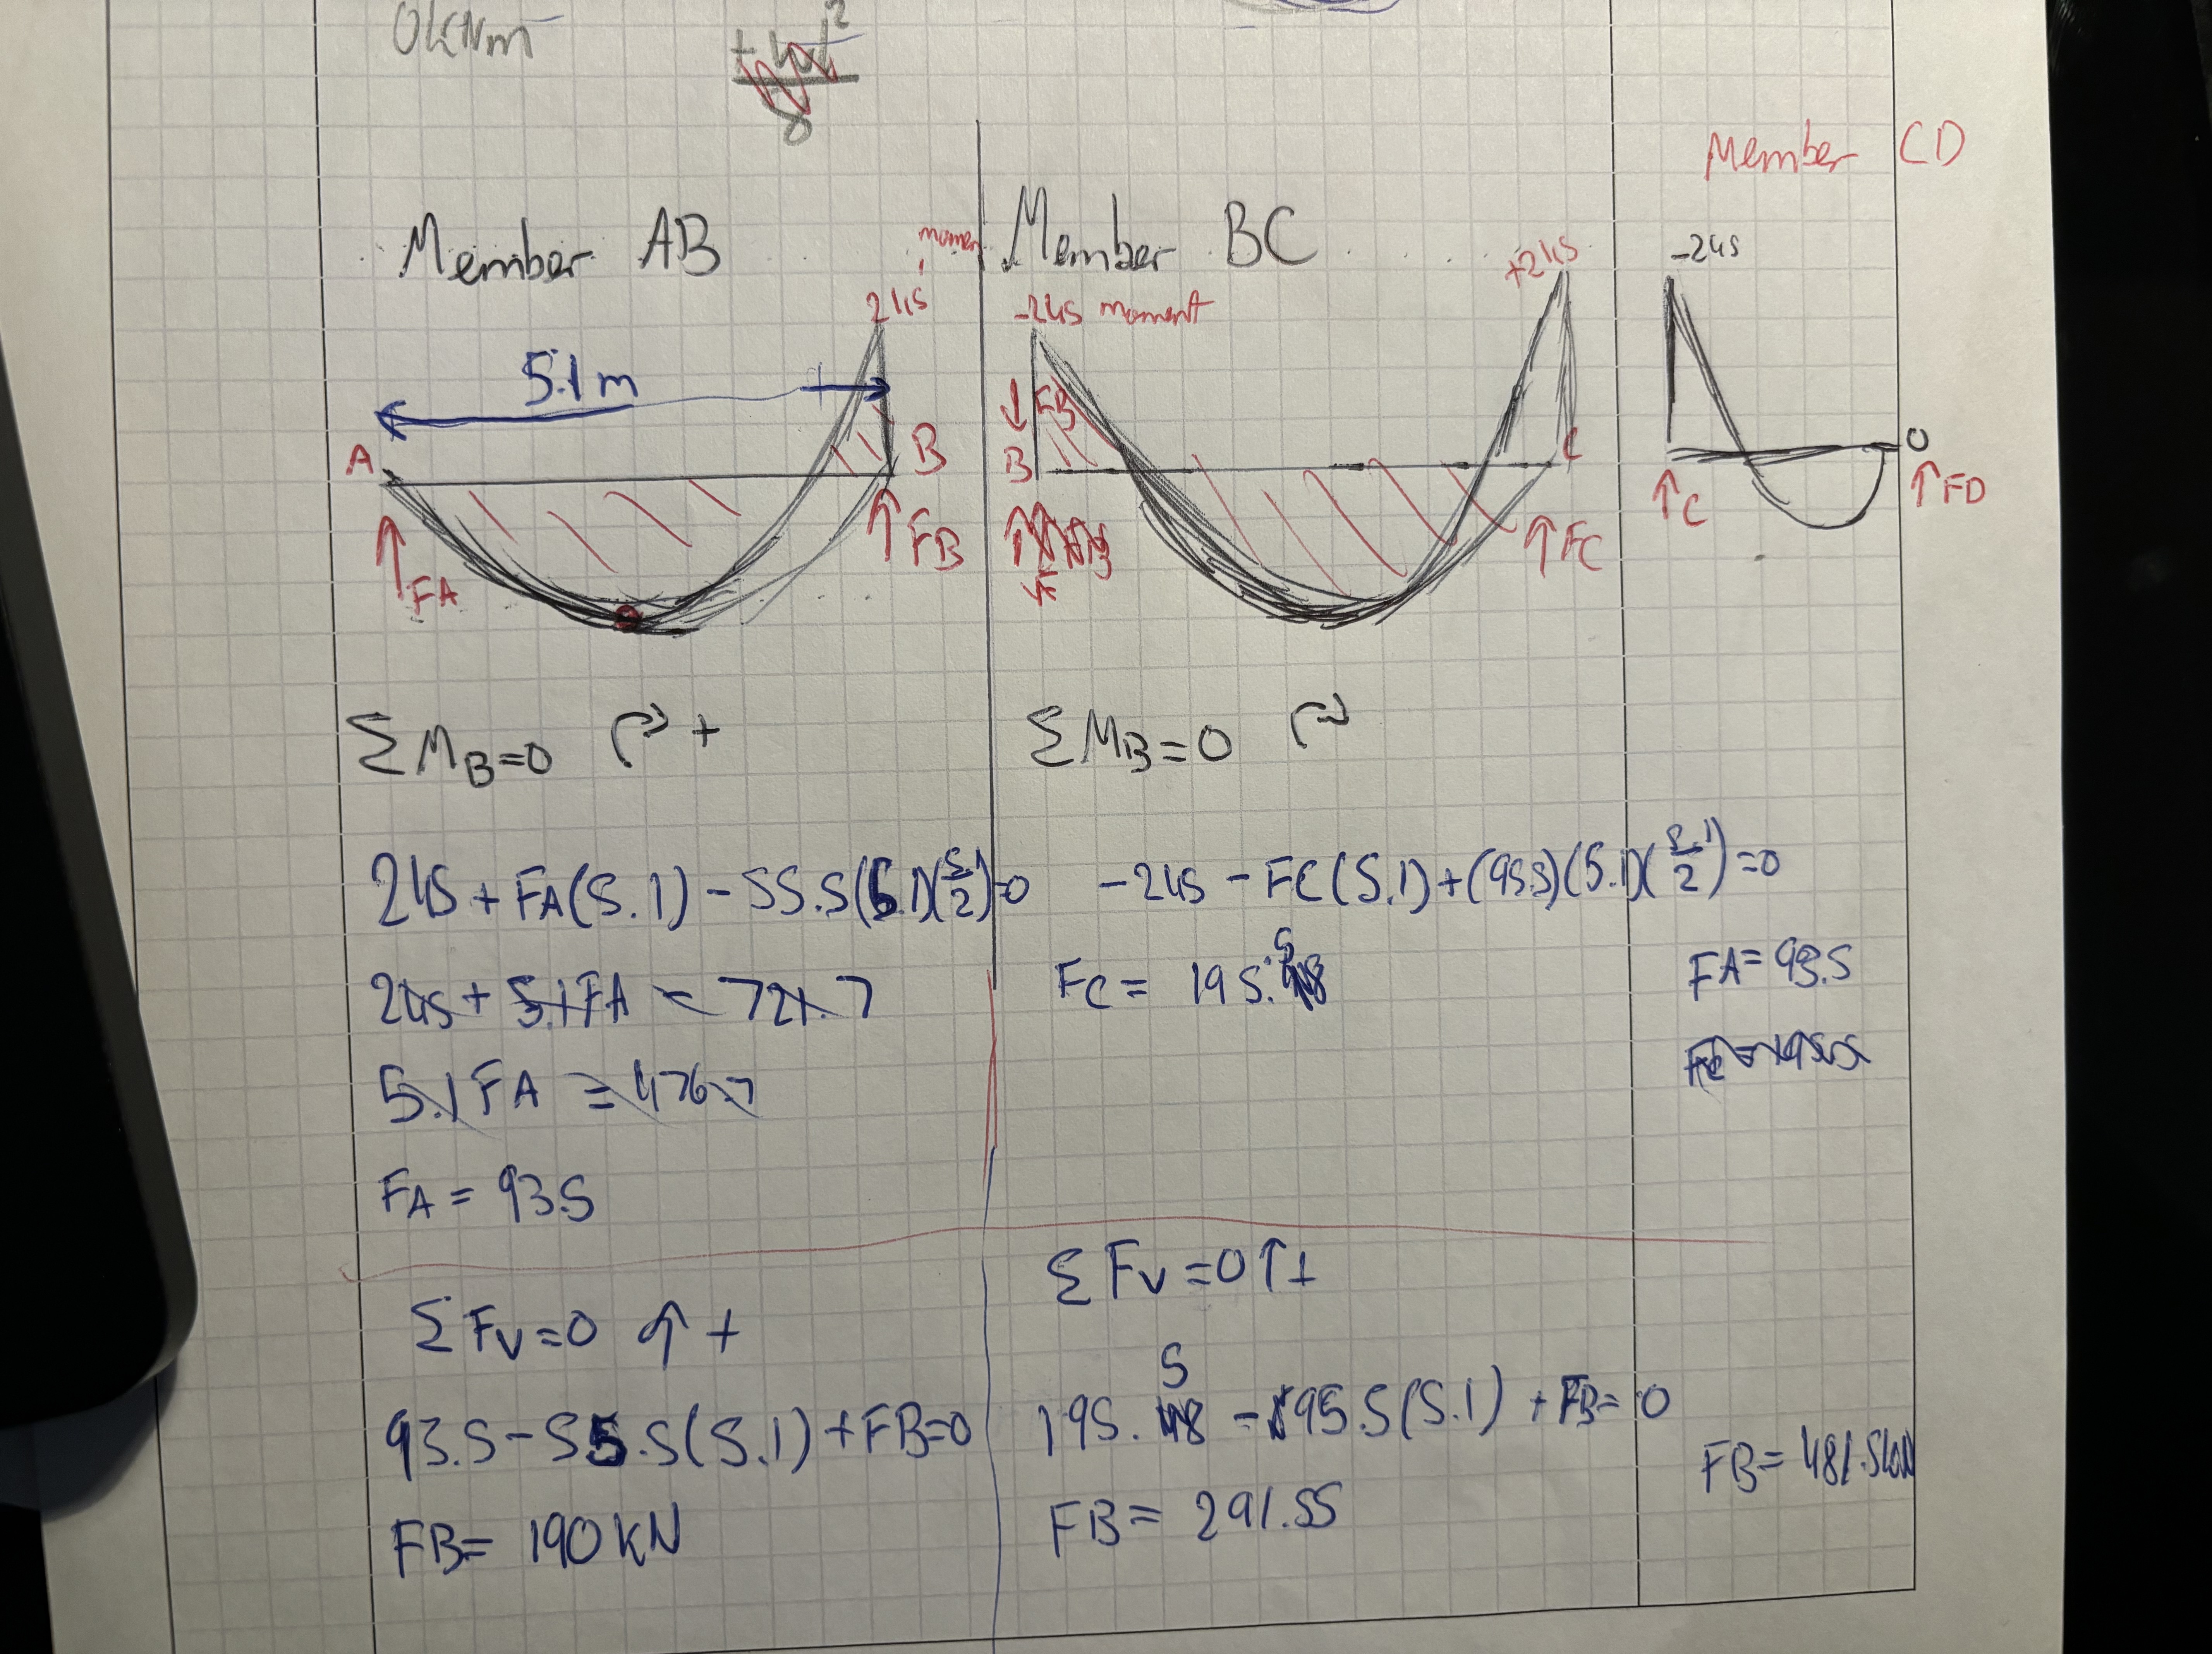 0kNm
8
Member CD
Member AB
Member BC
moment
245
-245 moment
+245
-245
5.1m
A
B
FA
FB
FB
B
C
FC
C
0
FD
ΣM_B=0 ↷ +
245 + FA(5.1) - 55.5(5.1)(5.1/2)=0
245 + 5.1FA = 721.7
5.1FA = 476.7
FA = 93.5
ΣFv=0 ↑ +
93.5-55.5(5.1)+FB=0
FB= 190kN
ΣM_B=0 ↷
-245 - FC(5.1)+(95.5)(5.1)(5.1/2)=0
FC = 195.5
ΣFv=0↑+
195.5 - 95.5(5.1) + FB= 0
FB= 291.55
FA= 93.5
FB= 481.5kN